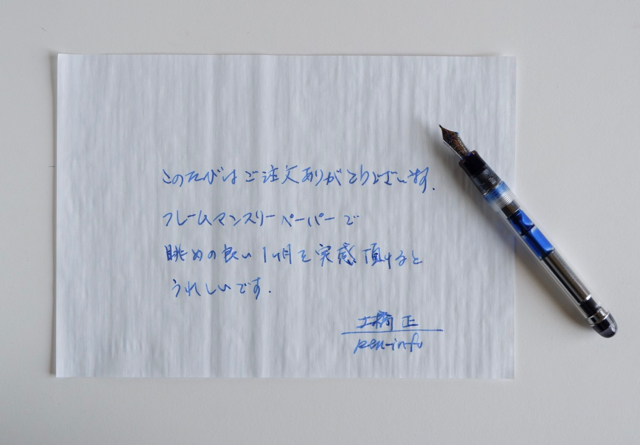 このたびはご注文ありがとうございます。
フレームマンスリーペーパーで
眺めの良い1ヶ月を実感頂けると
うれしいです。
土橋正
pen-info